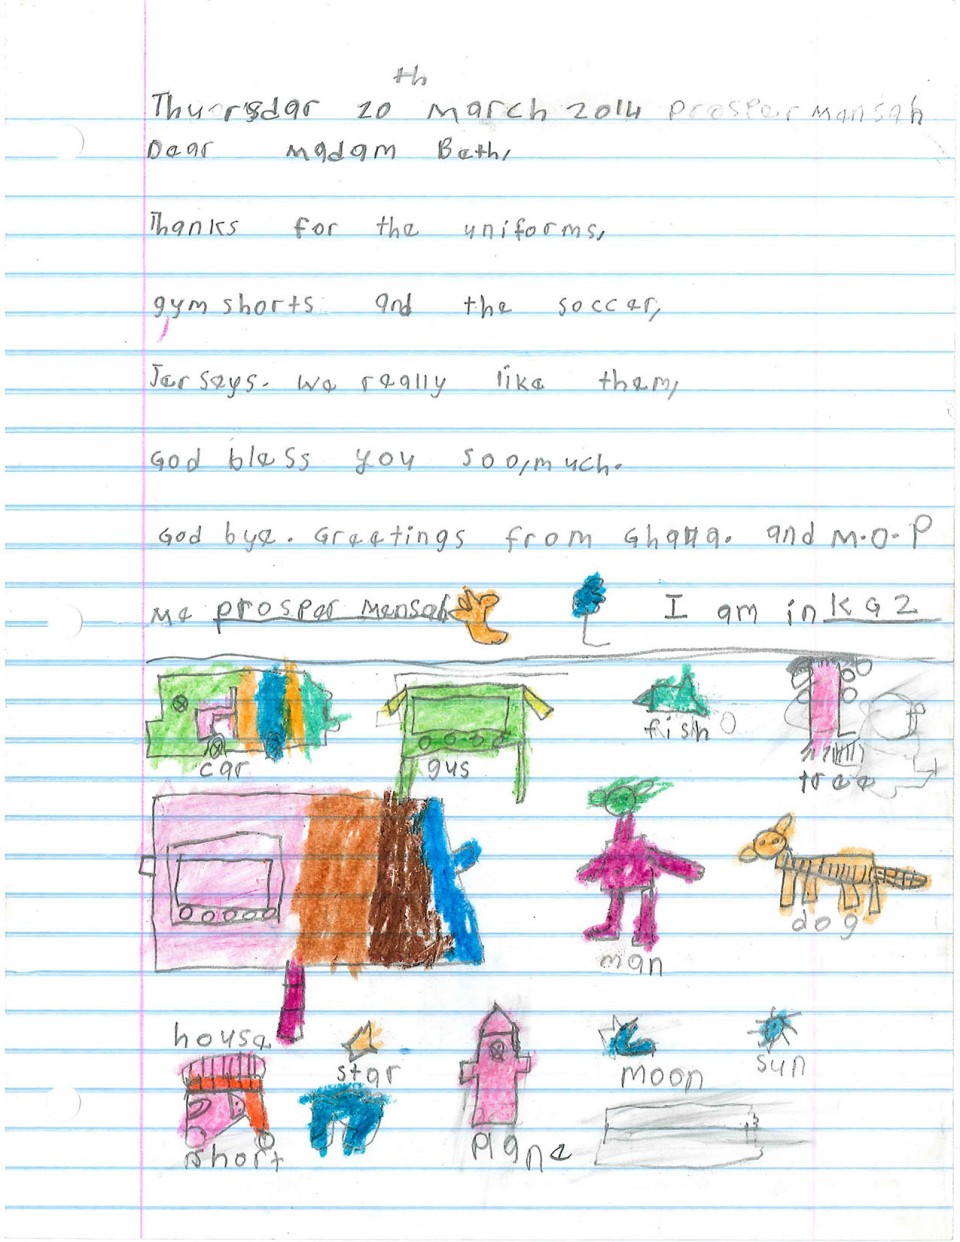 th
Thursdar 20 march 2014 prosper mansah
Dear madam Beth,
Thanks for the uniforms,
gym shorts and the soccer,
Jerseys. we really like them,
God bless you soo,much.
God bye. Greetings from Ghana. and M.O.P
Me prosper Mensah I am in KG2
car gus fish tree
man dog
house star moon sun
short plane